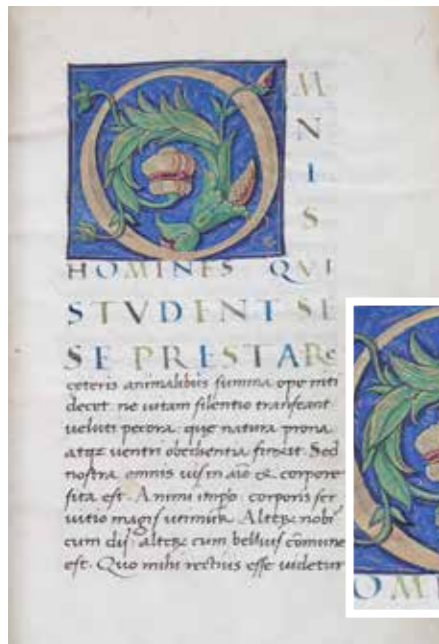 O
M
N
I
S
HOMINES QVI
STVDENT SE
SE PRESTARe
ceteris animalibus summa ope niti
decet. ne uitam silentio transeant
ueluti pecora. que natura prona
atqz uentri obedientia finxit. Sed
nostra omnis uis in aīo & corpore
sita est. Animi impo corporis ser
uitio magis utimur. Alterz nobis
cum dijs alterz cum belluis cōmune
est. Quo mihi rectius esse uidetur
OM